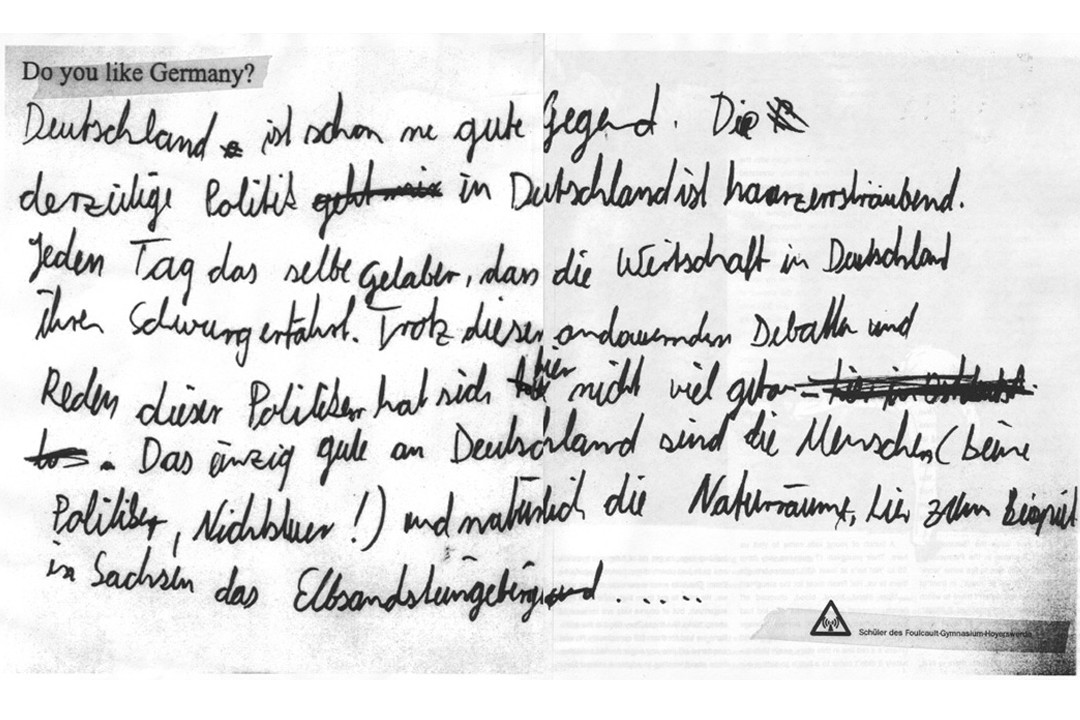 Do you like Germany?
Deutschland ist schon ne gute Gegend. Die
derzeitige Politik in Deutschland ist haarzerrsträubend.
Jeden Tag das selbe Gelaber, dass die Wirtschaft in Deutschland
ihren Schwung erfährt. Trotz diesen andauernden Debatten und
Reden dieser Politiker hat sich hier nicht viel getan
. Das einzig gute an Deutschland sind die Menschen (keine
Politiker, !) und natürlich die Naturräume, hier zum Beispiel
in Sachsen das Elbsandsteingebirge und .....
Schüler des Foulcault-Gymnasium-Hoyerswerda